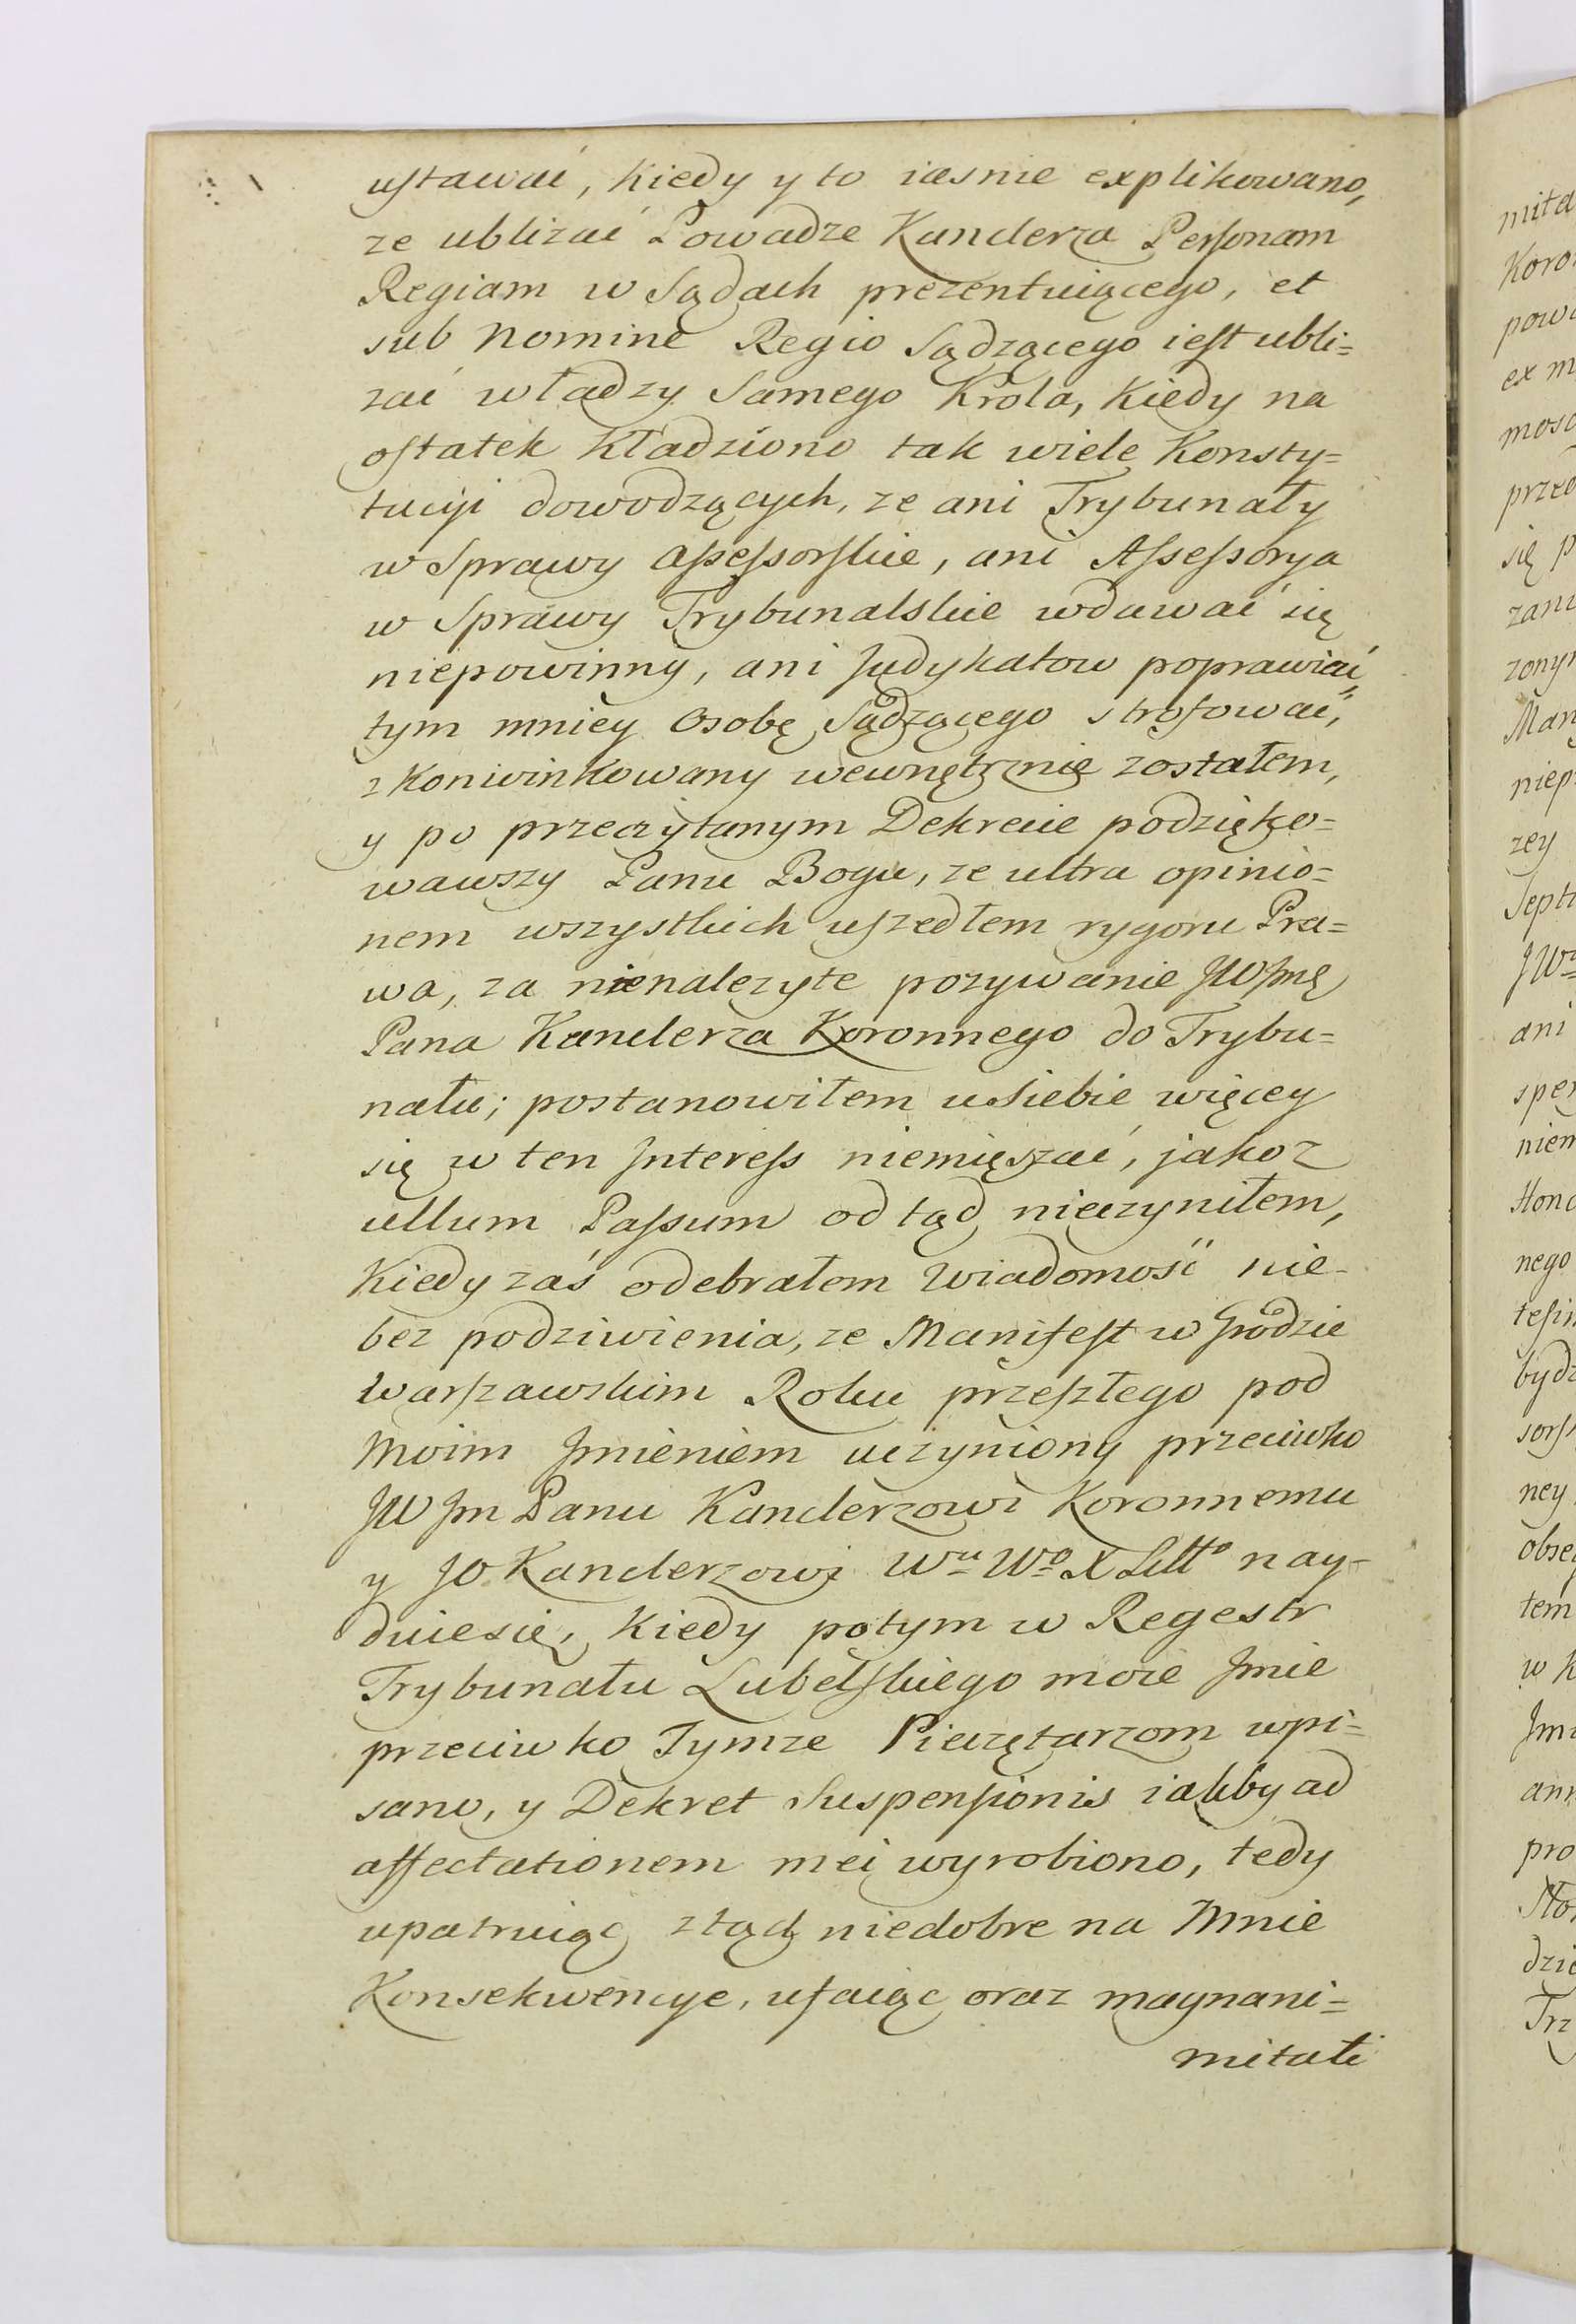 ustawać, Kiedy y to iasnie explikowano,
ze ublizać Powadze Kanclerza Personam
Regiam w Sądach prezentuiącego, et
sub Nomine Regio Sądzącego iest ubli=
zać władzy Samego Krola, Kiedy na
ostatek Kładziono tak wiele Konsty=
tucyi dowodzących, ze ani Trybunały
w Sprawy Assessorskie, ani Assessorya
w Sprawy Trybunalskie wdawać się
niepowinny, ani Judykatow poprawiać,
tym mniey Osobę Sądzącego strofować,
zkonwinkowany wewnętrznie zostałem,
y po przeczytanym Dekrecie podzięko=
wawszy Panu Bogu, ze ultra opinio=
nem wszystkich uszedłem rygoru Pra=
wa, za nienalezyte pozywanie JWJmę
Pana Kanclerza Koronnego do Trybu=
nału; postanowiłem u siebie więcey
się w ten Interess niemięszać, jakoz
ullum Passum od tąd nieczyniłem,
Kiedy zaś odebrałem Wiadomość nie-
bez podziwienia, ze Manifest w Grodzie
Warszawskim Roku przeszłego pod
Moim Jmieniem uczyniony przeciwko
JW Jm Panu Kanclerzowi Koronnemu
y JO Kanclerzowi Wu Wo X Litto nay-
duiesię, Kiedy potym w Regestr
Trybunału Lubelskiego moie Jmie
przeciwko Tymze Pieczętarzom wpi=
sano, y Dekret Suspensionis iakby ad
affectationem mei wyrobiono, tedy
upatruiąc ztąd niedobre na Mnie
Konsekwencye, ufaiąc oraz magnani=
mitati
mita
Koro
pow
ex m
mosc
przed
się p
zani
zony
Man
niep
zey
Sept
JW
ani
spe
niem
Hono
nego
bydz
ney
obse
tem
w K
Jmi
ann
pro
dzi
Trz